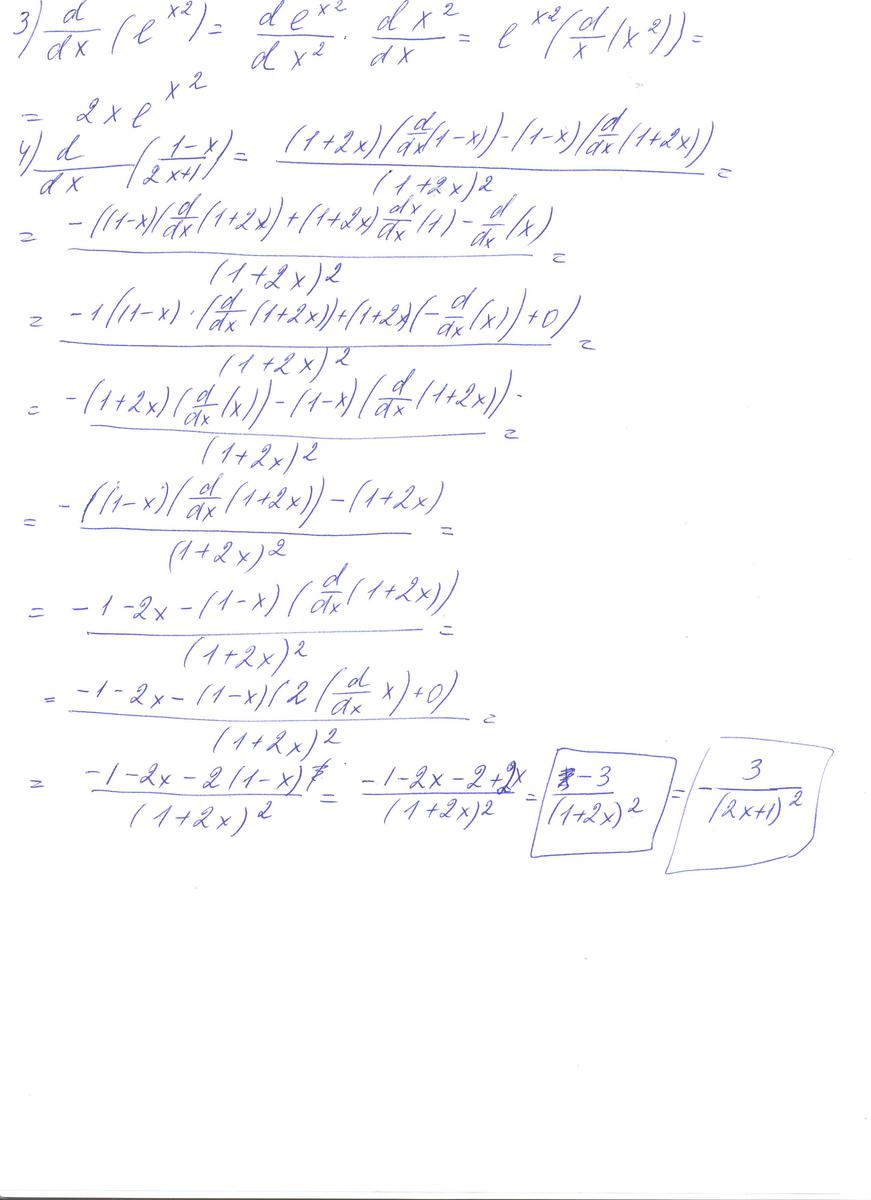 3) d/dx (e^x2) = de^x2/dx^2 · dx^2/dx = e^x2(d/x(x^2)) =
= 2xe^x^2
4) d/dx ((1-x)/(2x+1)) = ((1+2x)(d/dx(1-x))-(1-x)(d/dx(1+2x)))/(1+2x)^2 =
= (-((1-x)(d/dx(1+2x)+(1+2x)dx/dx(1)-d/dx(x))/(1+2x)^2 =
= (-1((1-x)·(d/dx(1+2x))+(1+2x)(-d/dx(x))+0))/(1+2x)^2 =
= (-(1+2x)(d/dx(x))-(1-x)(d/dx(1+2x)))/(1+2x)^2 =
= (-((1-x)(d/dx(1+2x))-(1+2x))/(1+2x)^2 =
= (-1-2x-(1-x)(d/dx(1+2x)))/(1+2x)^2 =
= (-1-2x-(1-x)(2(d/dx x)+0))/(1+2x)^2 =
= (-1-2x-2(1-x))/(1+2x)^2 = (-1-2x-2+2x)/(1+2x)^2 = -3/(1+2x)^2 = -3/(2x+1)^2